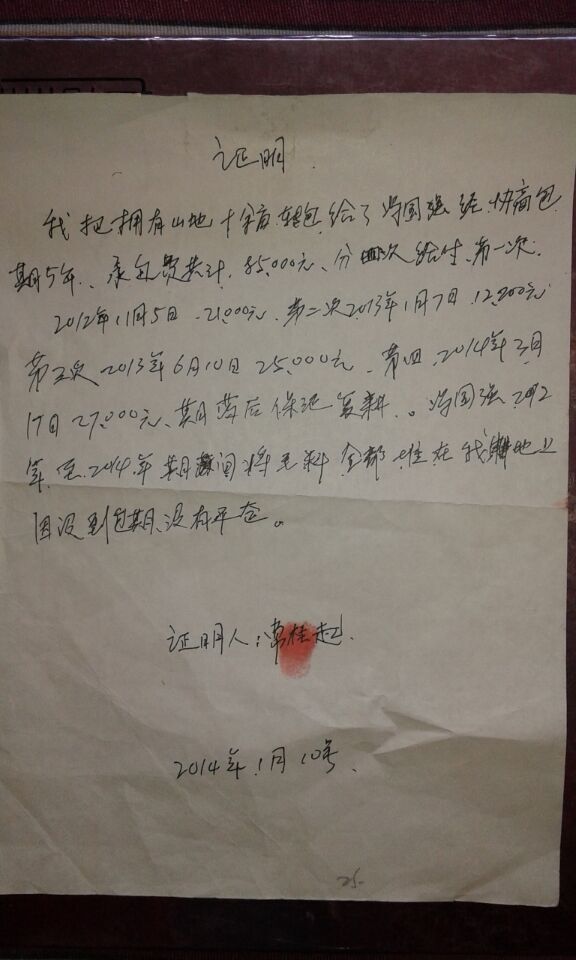 证明
我把拥有山地十余亩转包给了冯国强经协商包
期5年、承包费共计85,000元、分四次给付第一次
2012年11月5日21,000元、第二次2013年1月7日12,000元
第三次2013年6月10日25,000元、第四2014年3月
17日27,000元、期落后保证复耕。冯国强2012
年至2014年期间将毛料全部堆在我耕地上
因没到包期没有平查。
证明人:常桂起
2014年1月10号
25